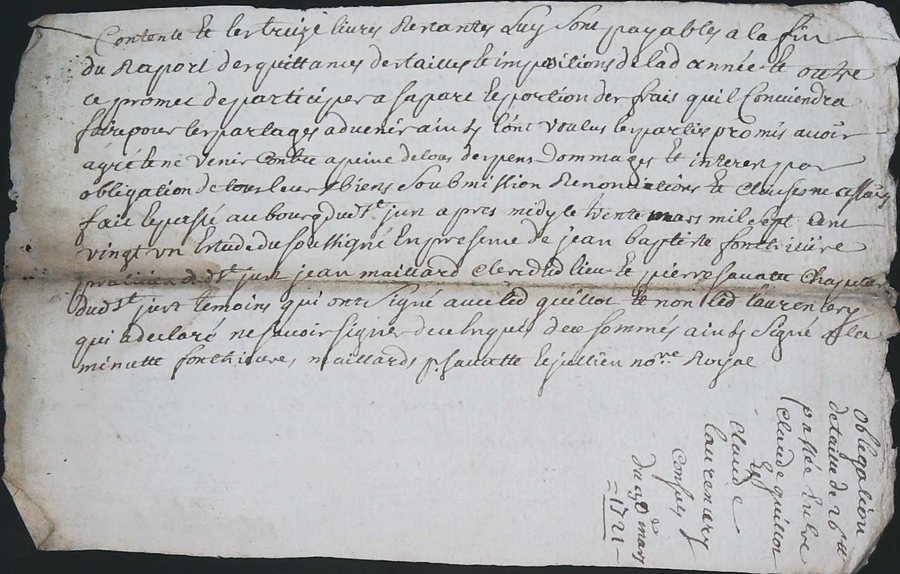 Contente et les treize livres Restantes Luy sont payables a la fin
du Raport des quittances des tailles et impositions de lad année et outre
ce promet de participer a sa part et portion des frais quil Conviendra
faire pour les partages advenir ainsy Lónt voulus les parties promis avoir
agré et ne venir Contre a peine de tous despens dommages et interest par
obligation de tous leurs biens Soubmission Renonciations et Clauses necessaires
fait et passé au bourg dud st just apres midy le trente mars mil sept cent
vingt vn Estude du soussigné En presence de jean baptiste
praticien dud st just jean maillard Clerc dud lieu et pierre savatte
dud st just temoins qui ont signé avec led quillot et non led laurencery
qui a declaré ne savoir signer de ce Enquis et de ce sommés ainsy signé a la
minutte maillard, p. savatte et jullien no.re Royal
Oblegation
de taille de 26 ₶
passée Entre
Claude quillot
Et
claude
laurencery
du 30e mars
= 1721 =